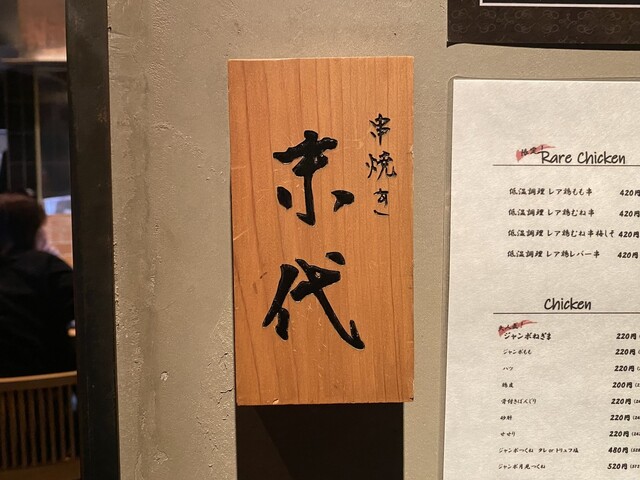 串焼き
末代
Rare Chicken
低温調理 レア鶏もも串 420円
低温調理 レア鶏むね串 420円
低温調理 レア鶏むね串梅しそ 420円
低温調理 レア鶏レバー串 420円
Chicken
ジャンボねぎま 220円
ジャンボもも 220円
ハツ 220円
鶏皮 200円
骨付きぼんじり 220円
砂肝 220円
せせり 220円
ジャンボつくね タレ or トリュフ塩 480円
ジャンボ月見つくね 520円